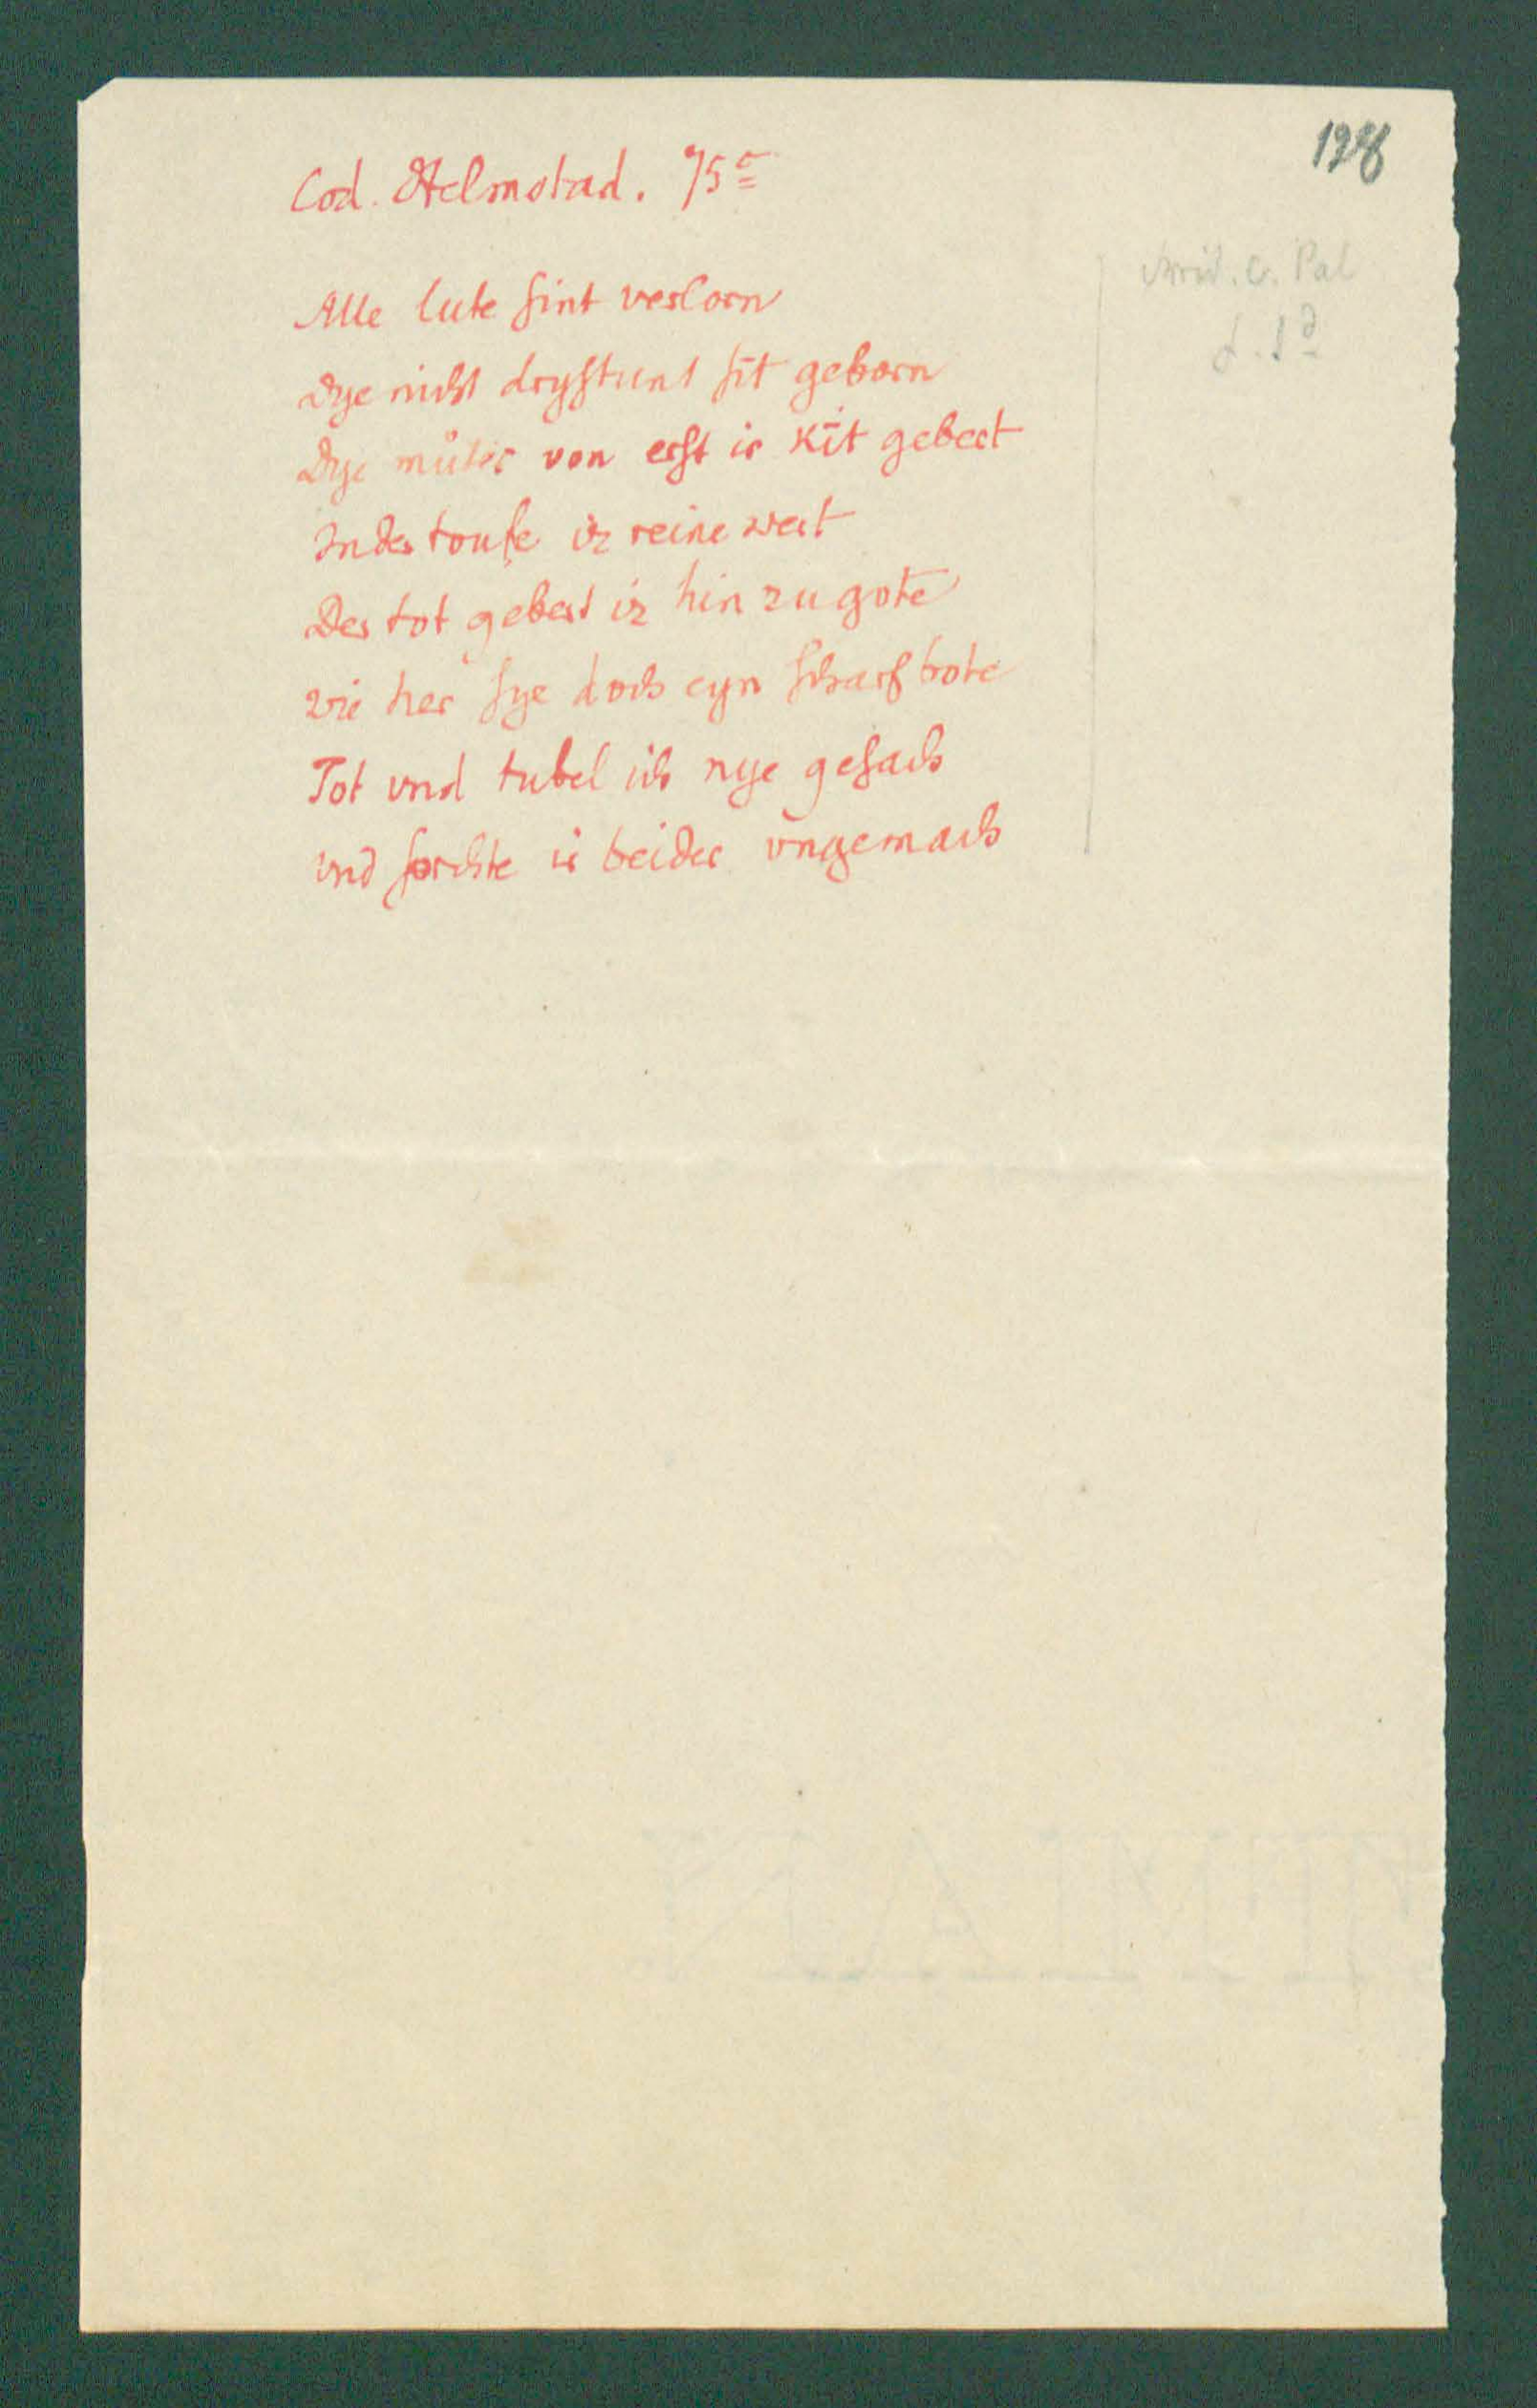 128
Cod. Helmstad. 75c
Alle lute sint verlorn
dye nicht drystunt sīt geborn
Dye můter von erst ir kīt gebert
In der toufe iz reine wert
Der tot gebert iz hin zu gote
wie her sye doch eyn scharf bote
Tot vnd tubel ich nye gesach
vnd forchte ir beider vngemach
c. Pal